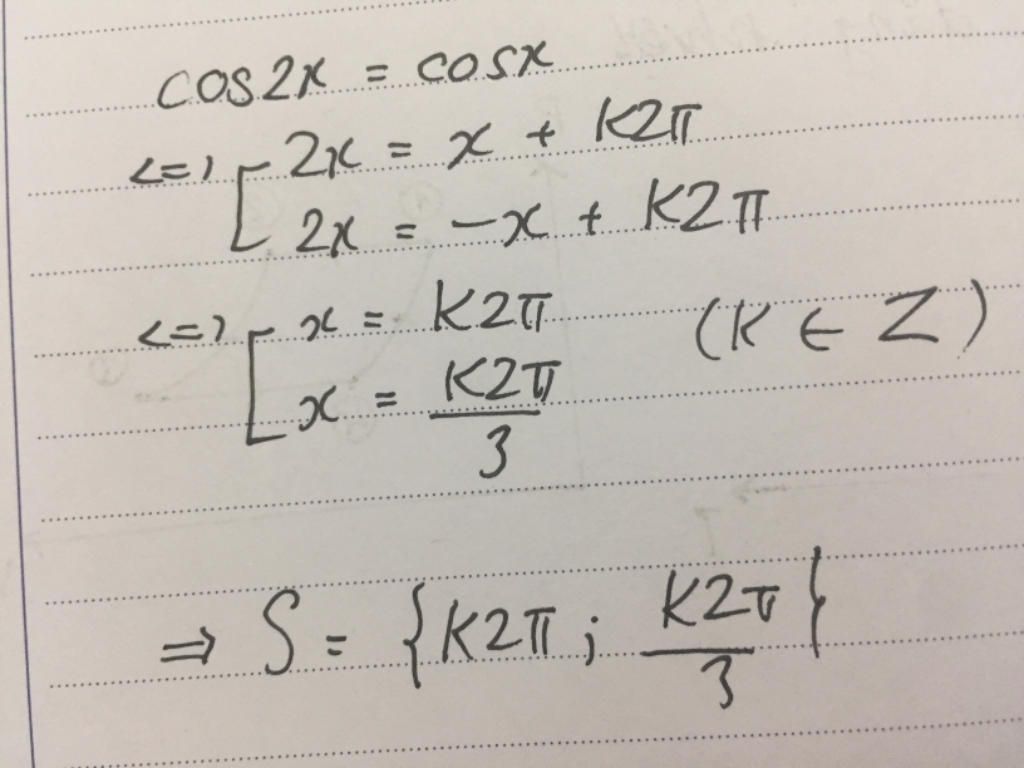 cos2x = cosx
<=> [ 2x = x + k2π
2x = -x + k2π
<=> [ x = k2π (k ∈ Z)
x = k2π/3
⇒ S = {k2π ; k2π/3}